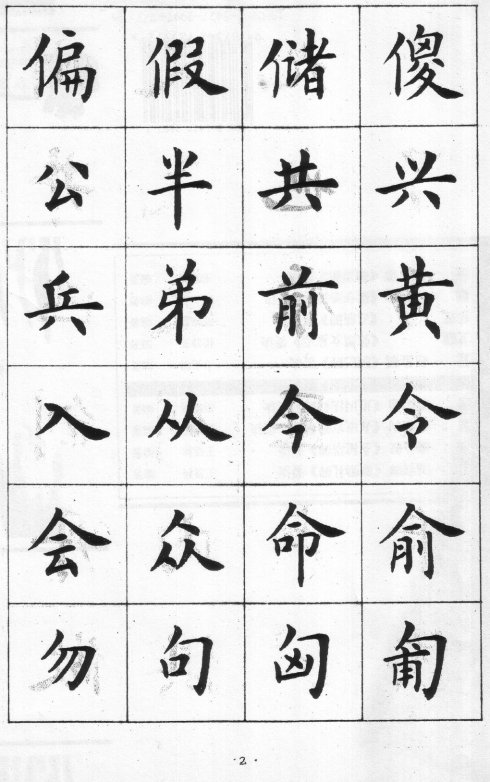 偏假储傻
公半共兴
兵弟前黄
入从今令
会众命俞
勿句匈匍
·2·